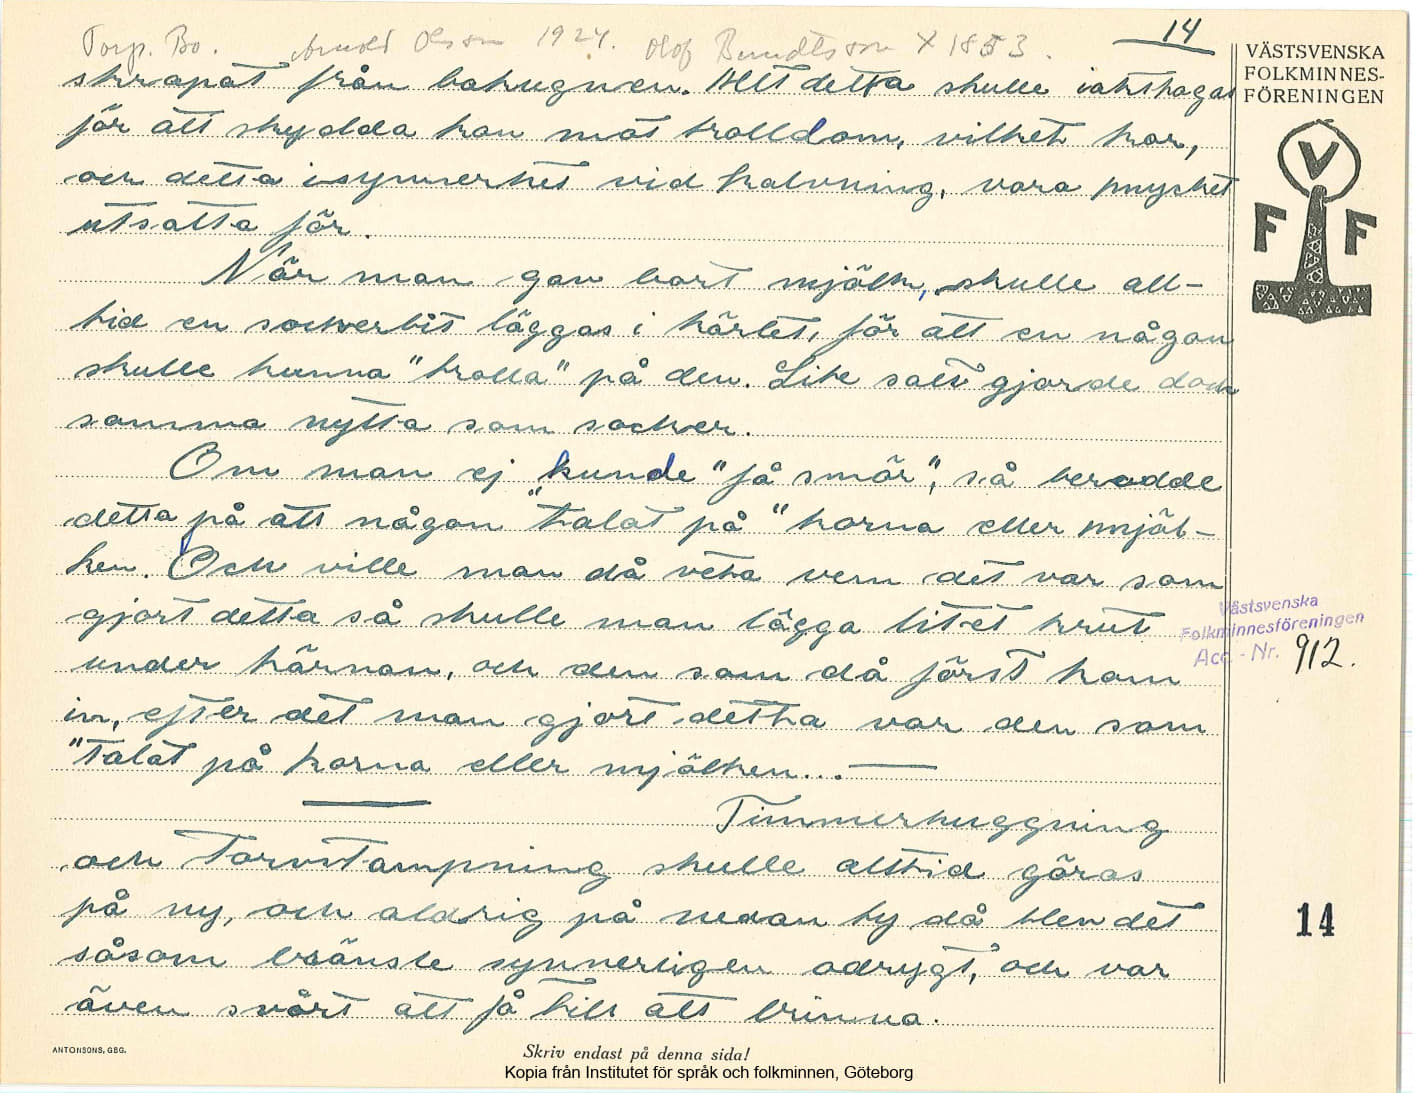 Torp. Bo. Arnold Olsson 1924. Olof Berndtsson X 1853.
14
skrapat från bakugnen. Allt detta skulle iakttagas
för att skydda kon mot trolldom, vilket kor,
och detta i synnerhet vid kalvning, vara mycket
utsatta för.
När man gav bort mjölk, skulle all-
tid en sockerbit läggas i kärlet, för att en någon
skulle kunna "trolla" på den. Lite salt gjorde dock
samma nytta som socker.
Om man ej kunde "få smör", så berodde
detta på att någon "talat på" korna eller mjöl-
ken. Och ville man då veta vem det var som
gjort detta så skulle man lägga litet krut
under kärnan, och den som då först kom
in, efter det man gjort detta var den som
"talat på korna eller mjölken...—
Timmerhuggning
och Torvstampning skulle alltid göras
på ny, och aldrig på nedan ty då blev det
såsom bränsle synnerligen odrygt, och var
även svårt att få till att brinna.
VÄSTSVENSKA
FOLKMINNES-
FÖRENINGEN
V
F F
Västsvenska
Folkminnesföreningen
Acc. - Nr. 912.
14
ANTONSONS, GBG.
Skriv endast på denna sida!
Kopia från Institutet för språk och folkminnen, Göteborg